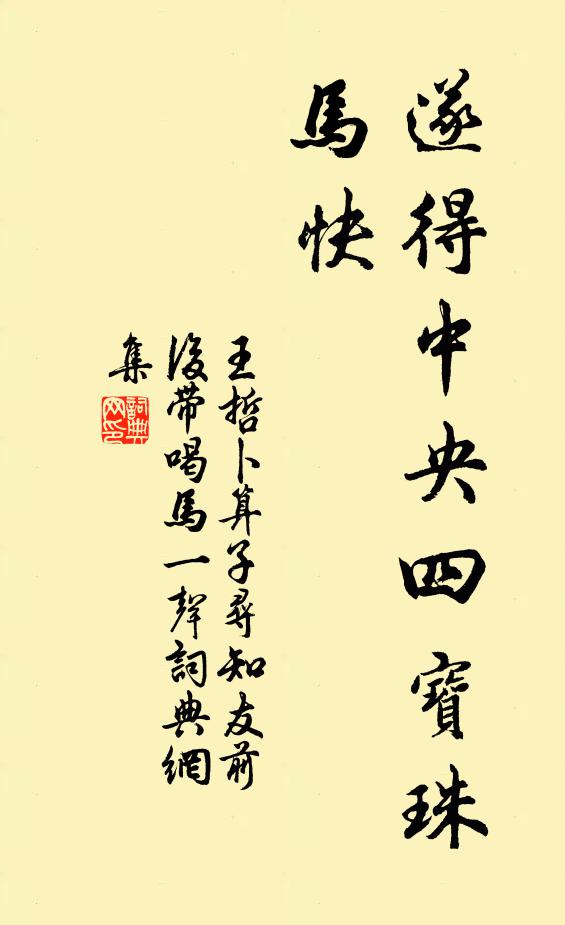 遂得中央四寶珠
馬快
王哲卜算子尋知友前
後帶喝馬一聲詞典網
集
詞典
网印